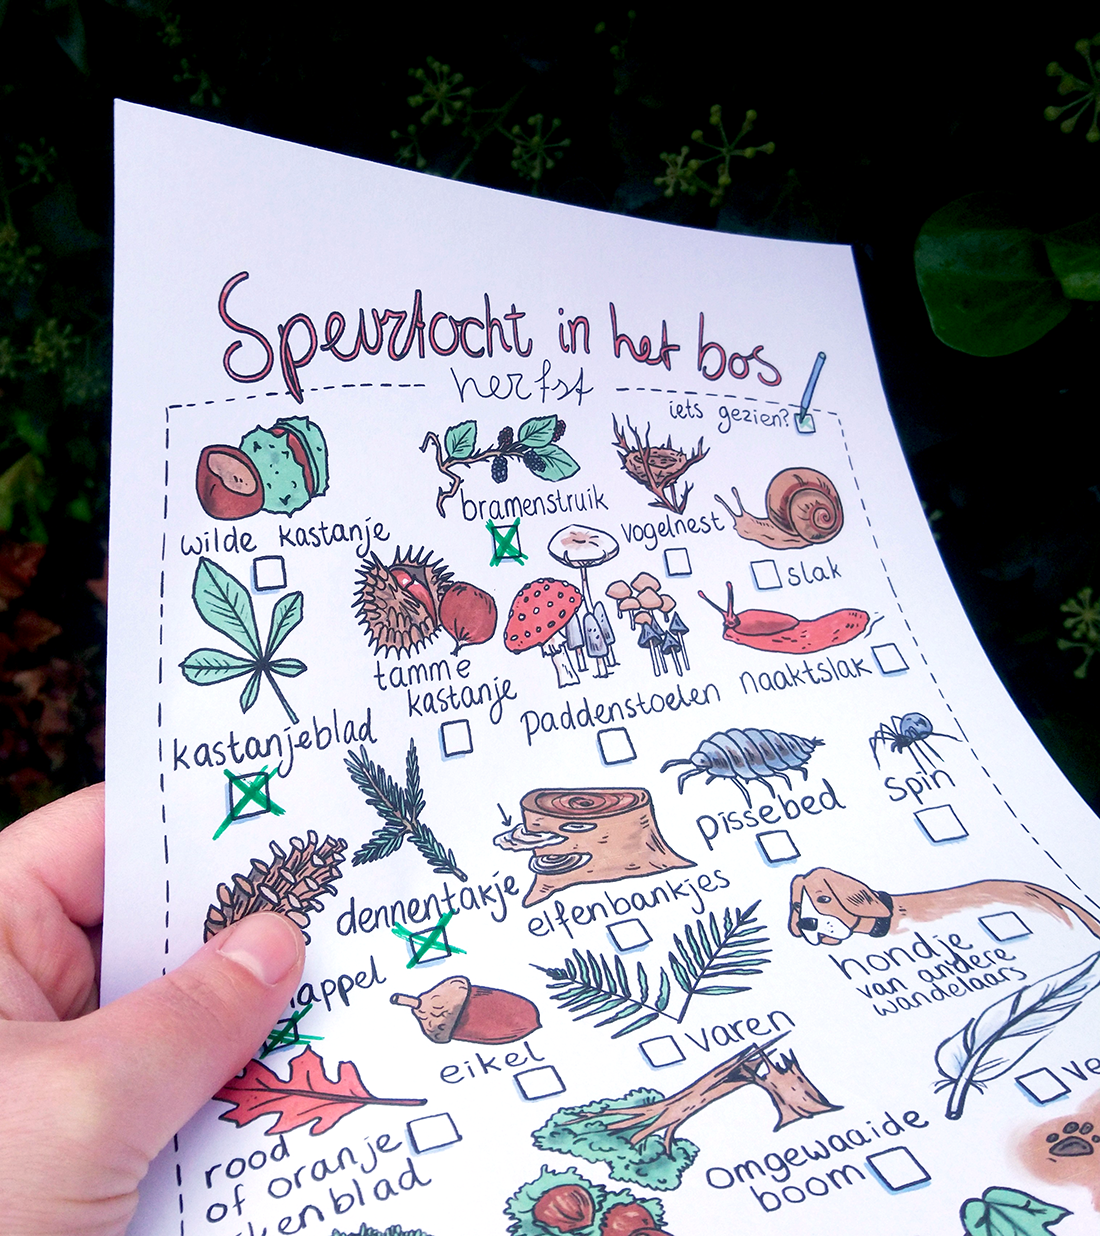 Speurtocht in het bos
herfst
iets gezien?
wilde kastanje
bramenstruik
vogelnest
slak
tamme
kastanje
paddenstoelen
naaktslak
kastanjeblad
dennentakje
elfenbankjes
pissebed
spin
appel
eikel
varen
hondje
van andere
wandelaars
rood
of oranje
kenblad
omgewaaide
boom
ve